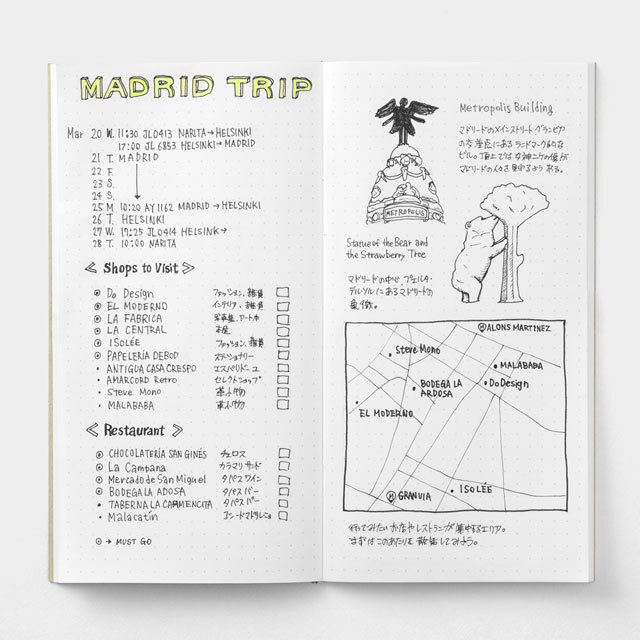 MADRID TRIP
Mar 20 W. 11:30 JL0413 NARITA→HELSINKI
17:00 JL6853 HELSINKI→MADRID
21 T. MADRID
22 F.
23 S.
24 S.
25 M. 10:20 AY1162 MADRID→HELSINKI
26 T. HELSINKI
27 W. 17:25 JL0414 HELSINK→
28 T. 10:00 NARITA
≪ Shops to Visit ≫
⊙ Do Design ファッション、雑貨 □
⊙ EL MODERNO インテリア、雑貨 □
⊙ LA FABRICA 写真集、アート本 □
⊙ LA CENTRAL 本屋 □
⊙ ISOLÉE ファッション、雑貨 □
⊙ PAPELERÍA DEBOD ステーショナリー □
• ANTIGUA CASA CRESPO エスパドリーユ □
• AMARCORD Retro セレクトショップ □
• Steve Mono 革小物 □
• MALABABA 革小物 □
≪ Restaurant ≫
⊙ CHOCOLATERÍA SAN GINÉS チュロス □
⊙ La Campana カラマリサンド □
⊙ Mercado de San Miguel タパス ワイン □
⊙ BODEGA LA ADOSA タパス バー □
• TABERNA LA CARMENCITA タパス バー □
• Malacatín コシードマドリレーニョ □
⊙ → MUST GO
Metropolis Building
マドリードのメインストリート グランビア
の交差点にあるランドマーク的な
ビル。頂上では女神ニケの像が
マドリードの人々を見守るようある。
METROPOLIS
Statue of the Bear and
the Strawberry Tree
マドリードの中心、プエルタ・
デル・ソルにあるマドリードの
象徴。
Ⓜ ALONS MARTINEZ
• Steve Mono
• MALABABA
• BODEGA LA
ARDOSA
• Do Design
• EL MODERNO
• ISOLÉE
Ⓜ GRANVIA
行ってみたいお店やレストランが集中するエリア。
まずはこのあたりを散策してみよう。